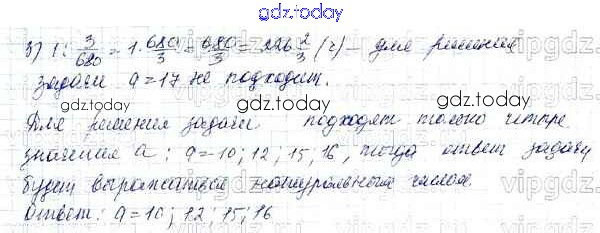 gdz.today
3) 1 : 3/680 = 1 · 680/3 = 680/3 = 226 2/3 (г) – для решения
задачи a = 17 не подходит.
gdz.today
Для решения задачи подходят только четыре
значения a : a = 10; 12; 15; 16, тогда ответ задачи
будет выражаться натуральным числом.
Ответ: a = 10; 12; 15; 16
gdz.today